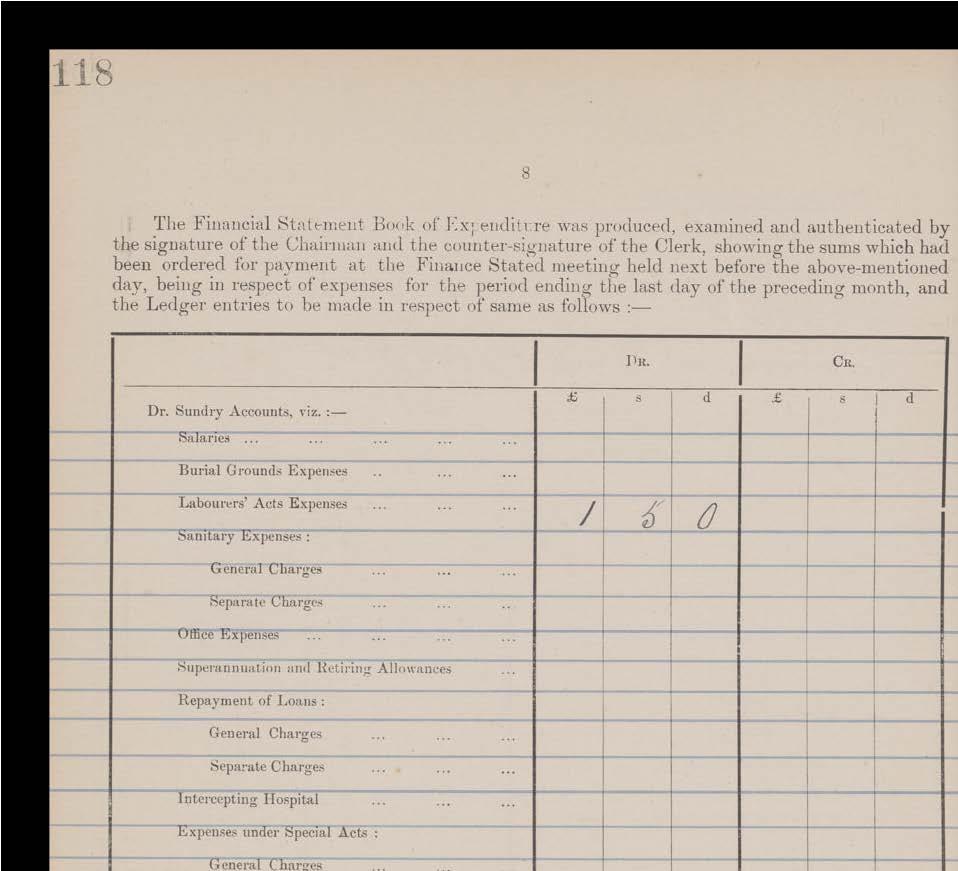 118
8
The Financial Statement Book of Expenditure was produced, examined and authenticated by
the signature of the Chairman and the counter-signature of the Clerk, showing the sums which had
been ordered for payment at the Finance Stated meeting held next before the above-mentioned
day, being in respect of expenses for the period ending the last day of the preceding month, and
the Ledger entries to be made in respect of same as follows :—
DR. CR.
£ s d £ s d
Dr. Sundry Accounts, viz. :—
Salaries ... ... ... ... ...
Burial Grounds Expenses .. ... ...
Labourers' Acts Expenses ... ... ... 1 5 0
Sanitary Expenses :
General Charges ... ... ...
Separate Charges ... ... ..
Office Expenses ... ... ... ...
Superannuation and Retiring Allowances ...
Repayment of Loans :
General Charges ... ... ...
Separate Charges ... ... ...
Intercepting Hospital ... ... ...
Expenses under Special Acts :
General Charges ... ... ...